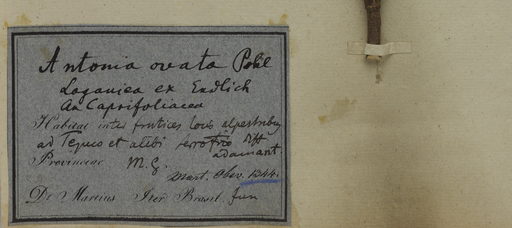 Antonia ovata Pohl
Loganiea ex Endlich
An Caprifoliacea
Habitat inter frutices locis alpestribus
ad Tejuco et alibi Serro frio Distr.
adamant.
Provinciae M. G.
Mart. Obs. 1344.
Dr Martius Iter Brasil. Jun